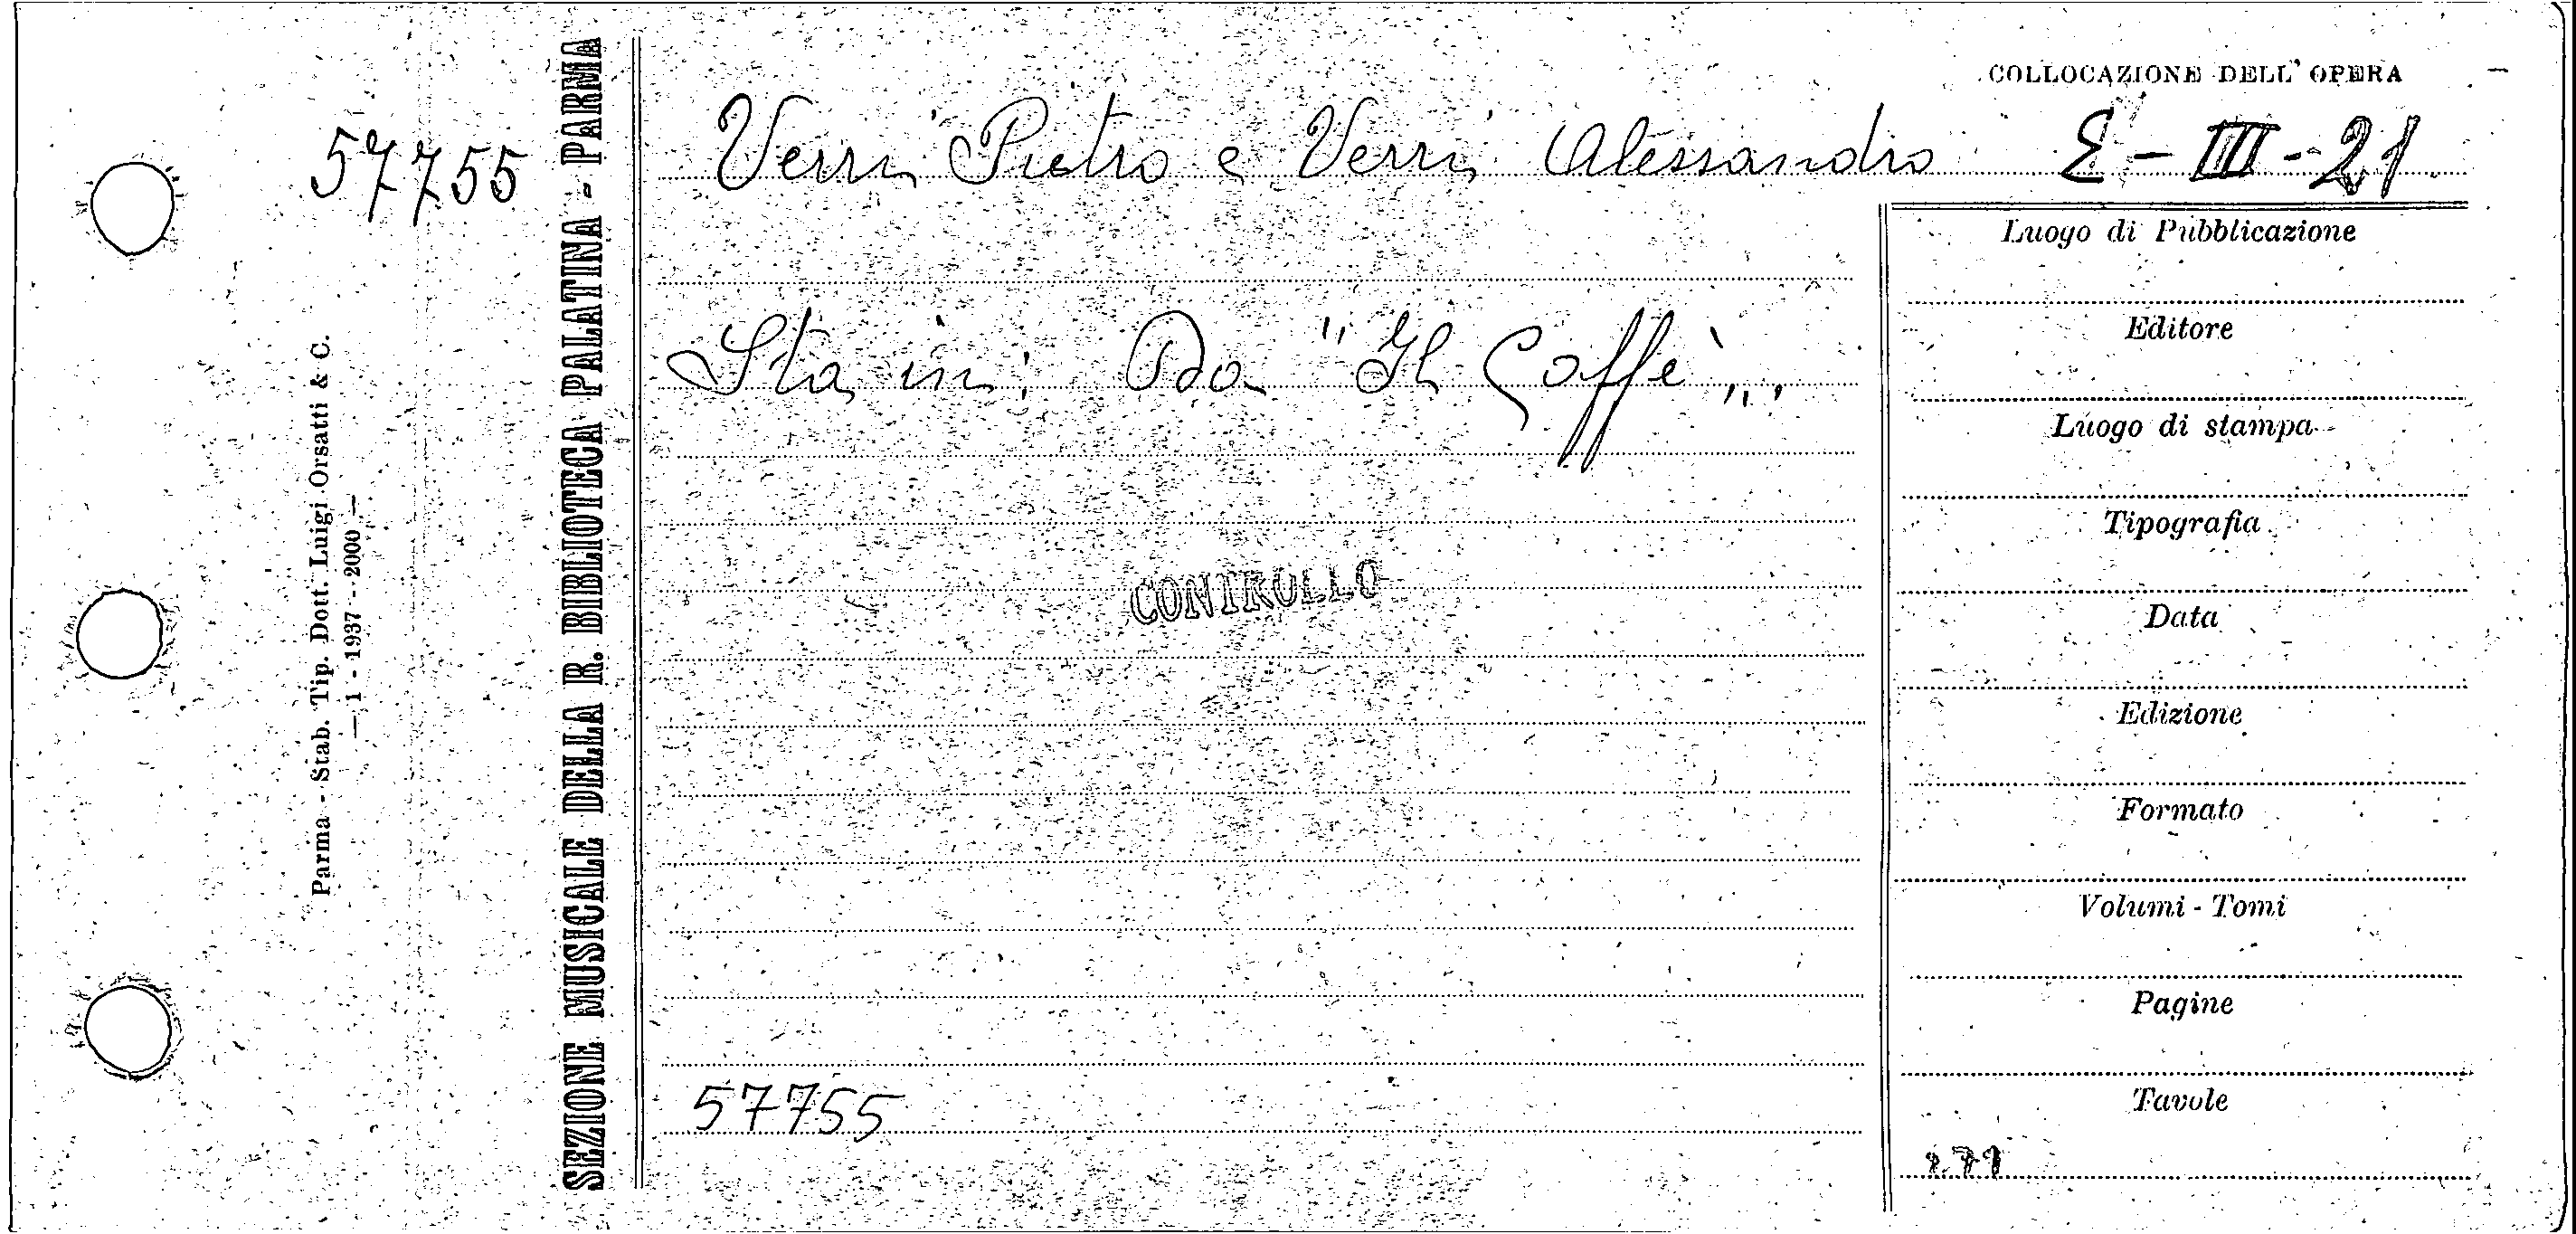 57755
Parma - Stab. Tip. Dott. Luigi Orsatti & C.
— 1 - 1937 - 2000 —
SEZIONE MUSICALE DELLA R. BIBLIOTECA PALATINA - PARMA
COLLOCAZIONE DELL' OPERA
Verri Pietro e Verri Alessandro E - III - 21
Sta in: Da "Il Caffè„.
CONTROLLO
57755
Luogo di Pubblicazione
Editore
Luogo di stampa
Tipografia
Data
Edizione
Formato
Volumi - Tomi
Pagine
Tavole